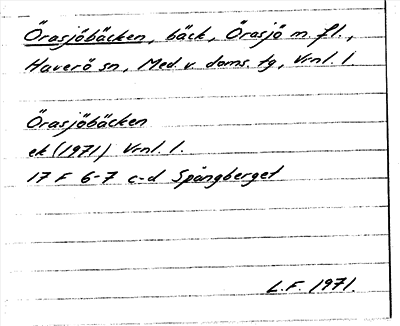 Örasjöbäcken, bäck, Örasjö m. fl.,
Haverö sn, Med. v. doms. tg, Vrnl. l.
Örasjöbäcken
ek (1971) Vrnl. l.
17 F 6-7 c-d Spångberget
L.F. 1971.